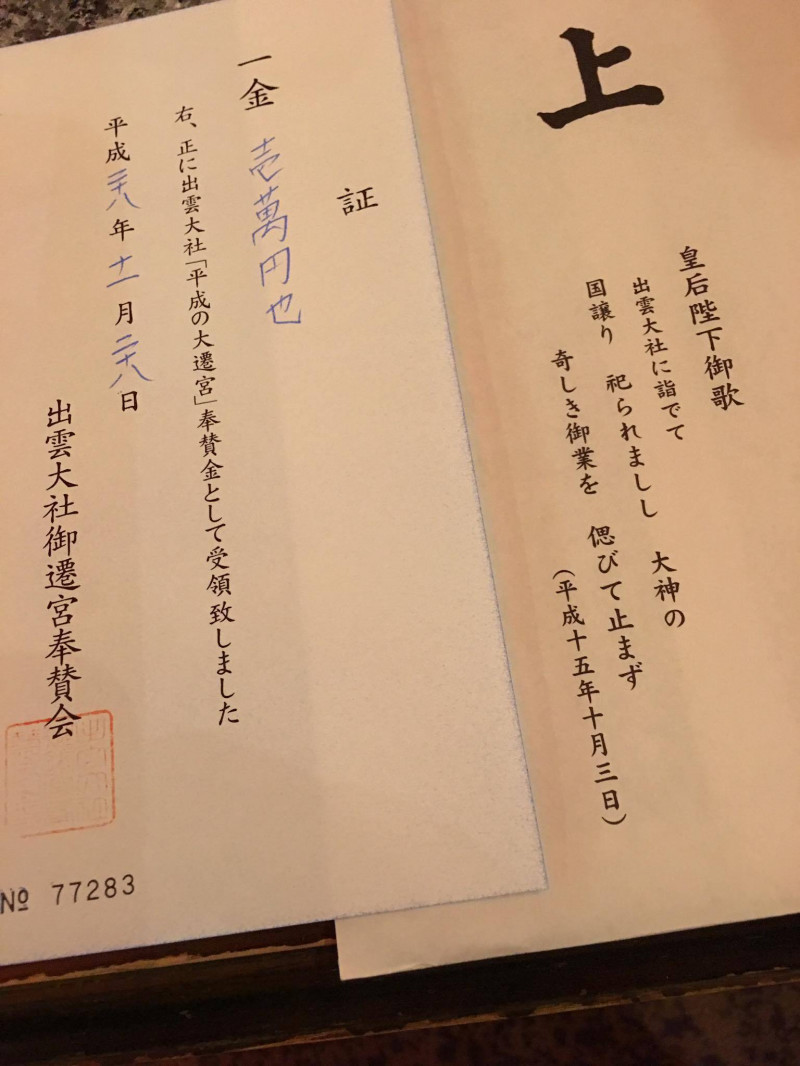 上
皇后陛下御歌
出雲大社に詣でて
国譲り 祀られましし 大神の
奇しき御業を 偲びて止まず
(平成十五年十月三日)
証
一金 壱萬円也
右、正に出雲大社「平成の大遷宮」奉賛金として受領致しました
平成二十八年十一月二十八日
出雲大社御遷宮奉賛会
№ 77283